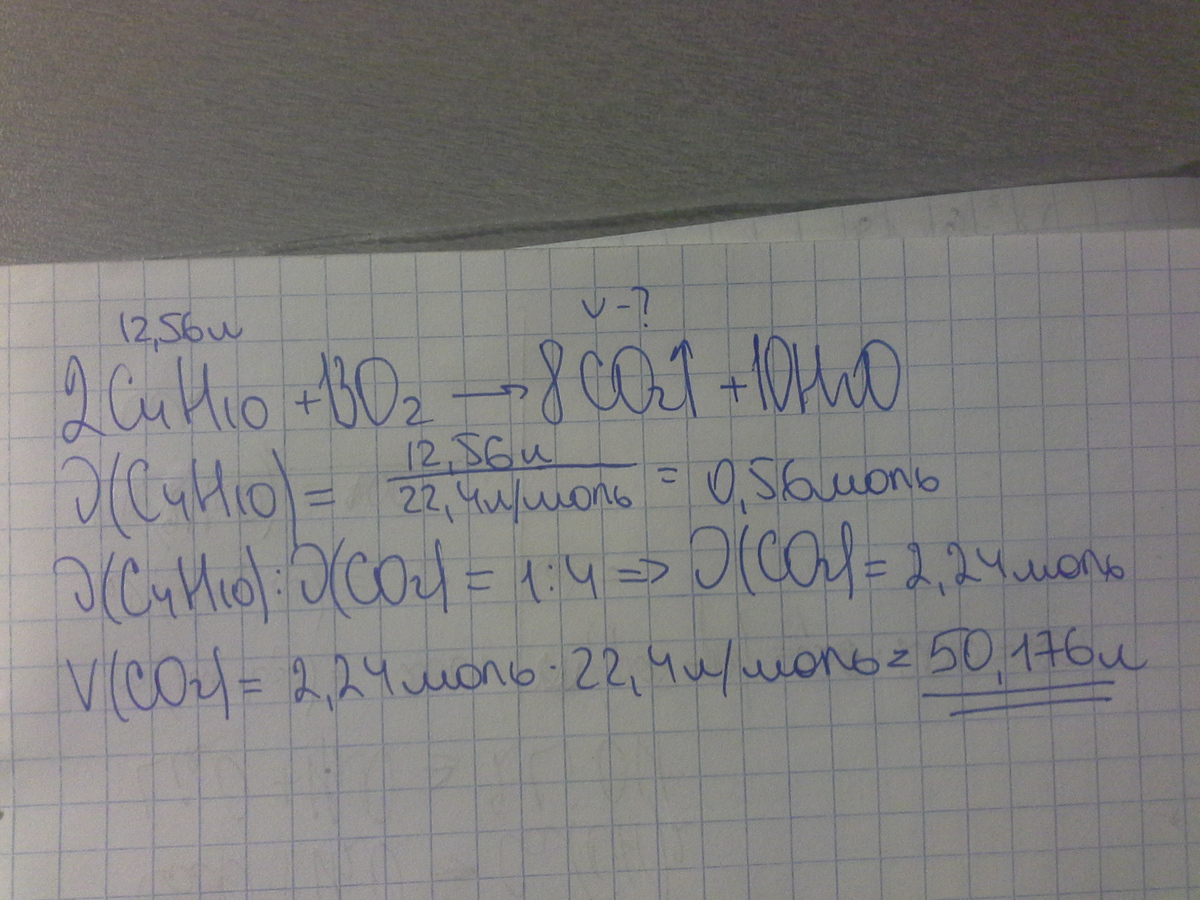 12,56л V-?
2C4H10 + 13O2 → 8CO2↑ + 10H2O
ν(C4H10) = 12,56л / 22,4л/моль = 0,56моль
ν(C4H10) : ν(CO2) = 1:4 => ν(CO2) = 2,24моль
V(CO2) = 2,24моль · 22,4л/моль = 50,176л